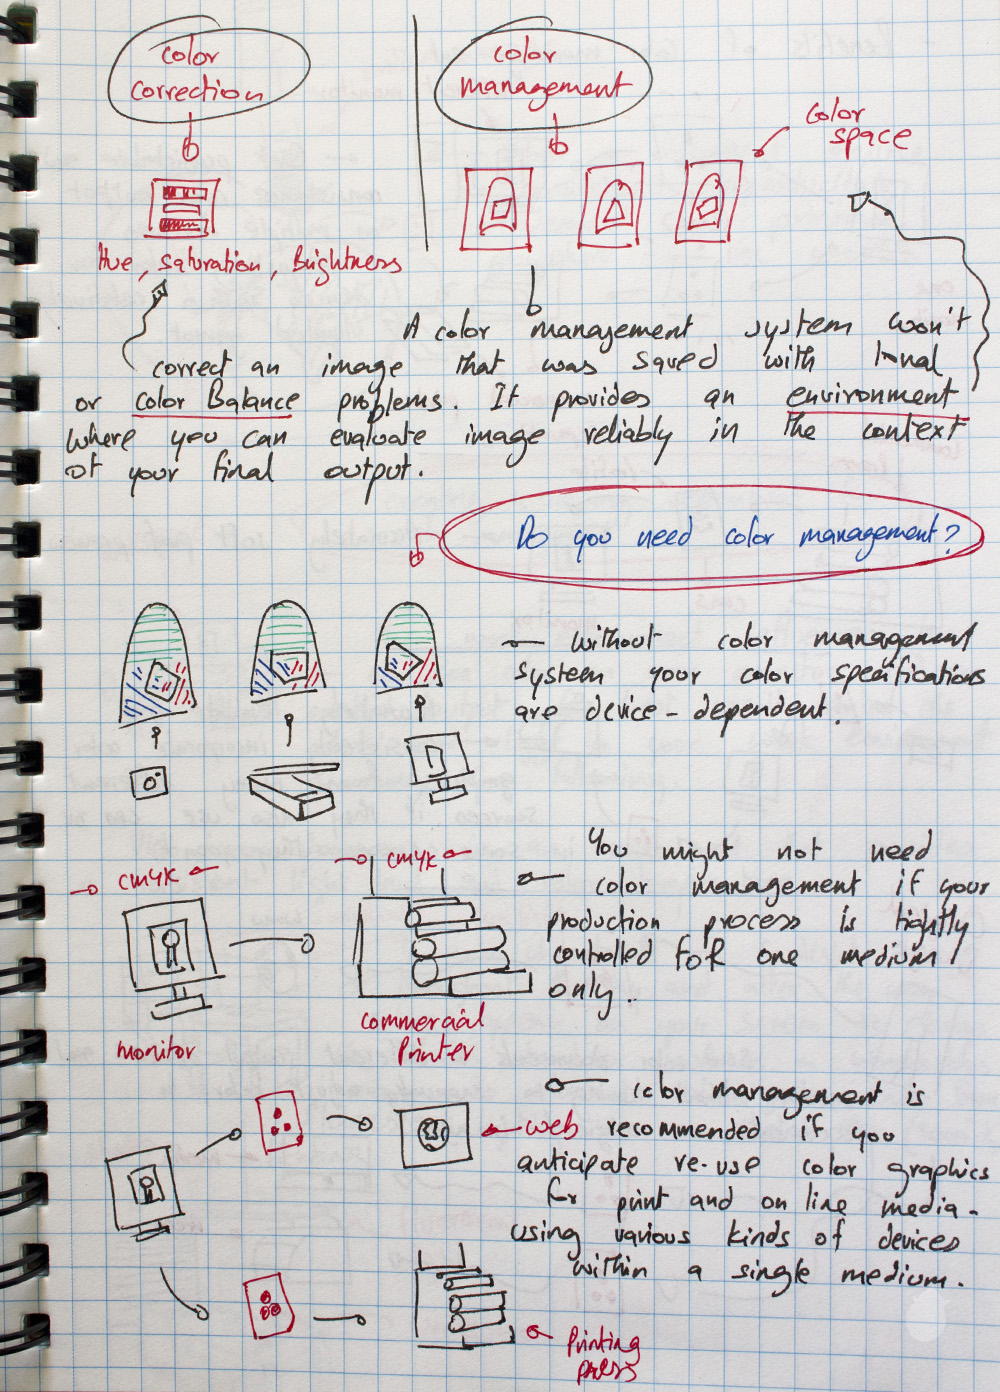 color
correction
color
management
color
space
Hue, Saturation, Brightness
A color management system won't
correct an image that was saved with tonal
or color Balance problems. It provides an environment
where you can evaluate image reliably in the context
of your final output.
Do you need color management?
without color management
system your color specifications
are device-dependent.
CMYK
CMYK
You might not need
color management if your
production process is tightly
controlled FOR one medium
only.
monitor
commercial
Printer
color management is
web
recommended if you
anticipate re-use color graphics
for print and on line media-
using various kinds of devices
within a single medium.
Printing
press